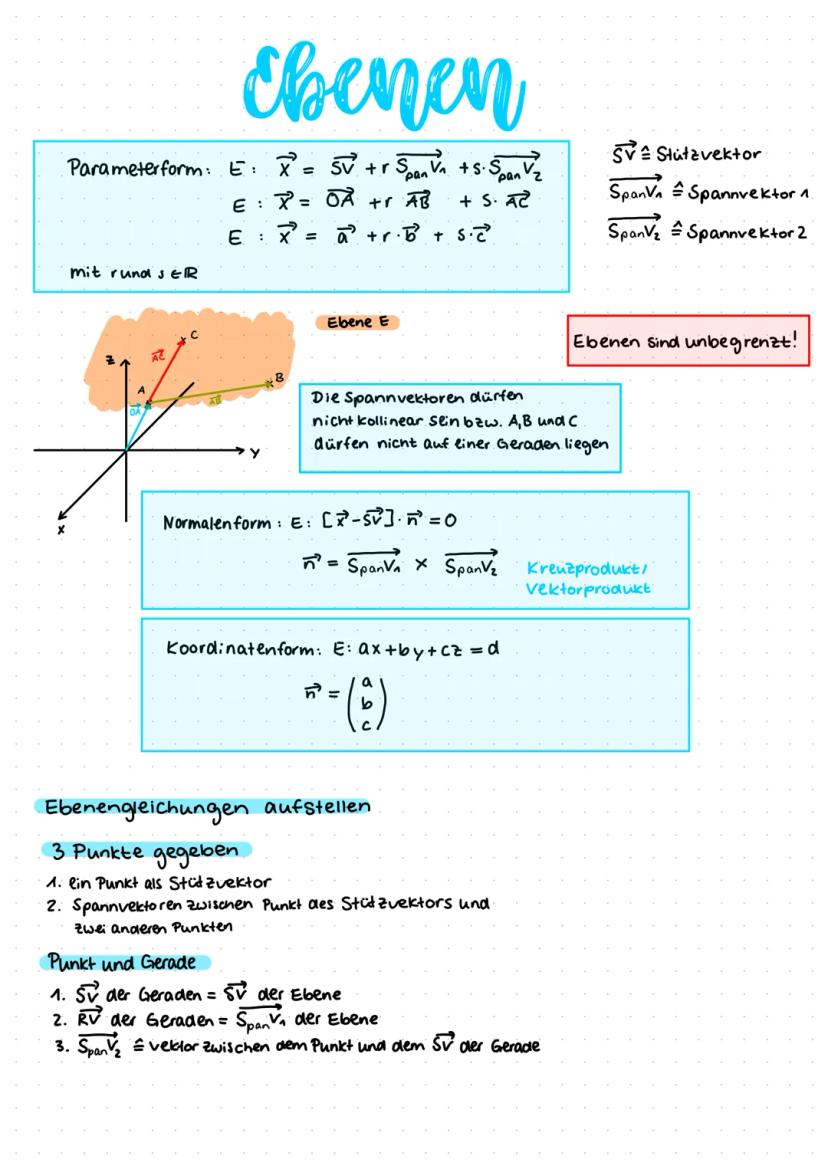 Ebenen
Parameterform: E: x⃗ = SV⃗ + r SpanV₁⃗ + s·SpanV₂⃗
E: x⃗ = OA⃗ + r AB⃗ + s·AC⃗
E: x⃗ = a⃗ + r·b⃗ + s·c⃗
mit r und s ∈ ℝ
SV⃗ ≙ Stützvektor
SpanV₁⃗ ≙ Spannvektor 1
SpanV₂⃗ ≙ Spannvektor 2
Ebene E
Ebenen sind unbegrenzt!
z
AC⃗
C
A
OA⃗
AB⃗
B
y
x
Die Spannvektoren dürfen
nicht kollinear sein bzw. A,B und C
dürfen nicht auf einer Geraden liegen
Normalenform: E: [x⃗-SV⃗]·n⃗ = 0
n⃗ = SpanV₁⃗ × SpanV₂⃗
Kreuzprodukt/
Vektorprodukt
Koordinatenform: E: ax+by+cz = d
n⃗ = (a
b
c)
Ebenengleichungen aufstellen
3 Punkte gegeben
1. ein Punkt als Stützvektor
2. Spannvektoren zwischen Punkt des Stützvektors und
zwei anderen Punkten
Punkt und Gerade
1. SV⃗ der Geraden = SV⃗ der Ebene
2. RV⃗ der Geraden = SpanV₁⃗ der Ebene
3. SpanV₂⃗ ≙ Vektor zwischen dem Punkt und dem SV⃗ der Gerade